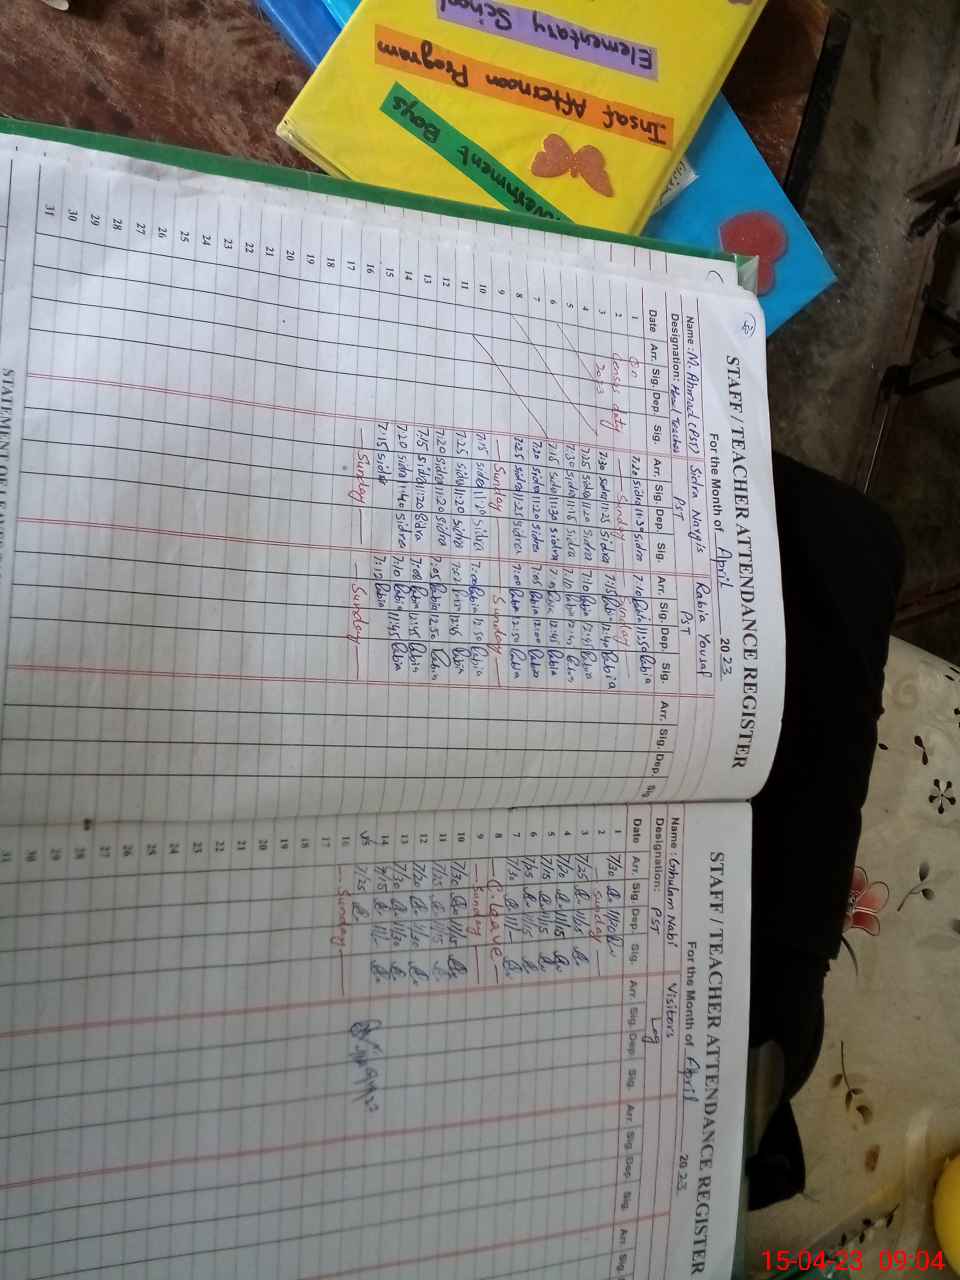 Elementary School
Insaf Afternoon Program
Boys
STAFF / TEACHER ATTENDANCE REGISTER
For the Month of April 2023
Name : M. Ahmad (PST) Sidra Nargis Rabia Yousaf
Designation: Head Teacher PST PST
Date Arr. Sig. Dep. Sig. Arr. Sig. Dep. Sig. Arr. Sig. Dep. Sig. Arr. Sig. Dep. Sig
1 On 7:20 Sidra 11:30 Sidra 7:10 Rabia 11:50 Rabia
2 Census duty Sunday Sunday
3 2023 7:30 Sidra 11:25 Sidra 7:15 Rabia 12:40 Rabia
4 7:25 Sidra 11:20 Sidra 7:10 Rabia 12:45 Rabia
5 7:30 Sidra 11:15 Sidra 7:10 Rabia
6 7:15 Sidra 11:30 Sidra Rabia 12:45 Rabia
7 7:20 Sidra 11:20 Sidra 7:05 Rabia 12:00 Rabia
8 7:25 Sidra 11:25 Sidra 7:00 Rabia 12:50 Rabia
9 Sunday Sunday
10 7:15 Sidra 11:20 Sidra 7:00 Rabia 12:50 Rabia
11 7:25 Sidra 11:20 Sidra 12:45 Rabia
12 7:20 Sidra 11:20 Sidra 7:05 Rabia 12:50 Rabia
13 7:15 Sidra 11:20 Sidra 7:08 Rabia 12:45 Rabia
14 7:20 Sidra 11:40 Sidra 7:10 Rabia 11:45 Rabia
15 7:15 Sidra 7:12 Rabia
16 Sunday Sunday
17
18
19
20
21
22
23
24
25
26
27
28
29
30
31
STAFF / TEACHER ATTENDANCE REGISTER
For the Month of April 2023
Name : Ghulam Nabi Visitors
Designation: PST Log
Date Arr. Sig. Dep. Sig. Arr. Sig. Dep. Sig. Arr. Sig. Dep. Sig. Arr. Sig.
1 7/30
2 Sunday
3 7/25 11/15
4 7/20 11/15
5 7/15 11/15
6 7/25 11/15
7 7/30
8 C. leave
9 Sunday
10 7/30 11/15
11 7/25 11/15
12 7/20 11/30
13 7/30 11/30
14 7/15
15 7/25
16 Sunday
17
18
19
20
21
22
23
24
25
26
27
28
29
30
31
15-04-23 09:04